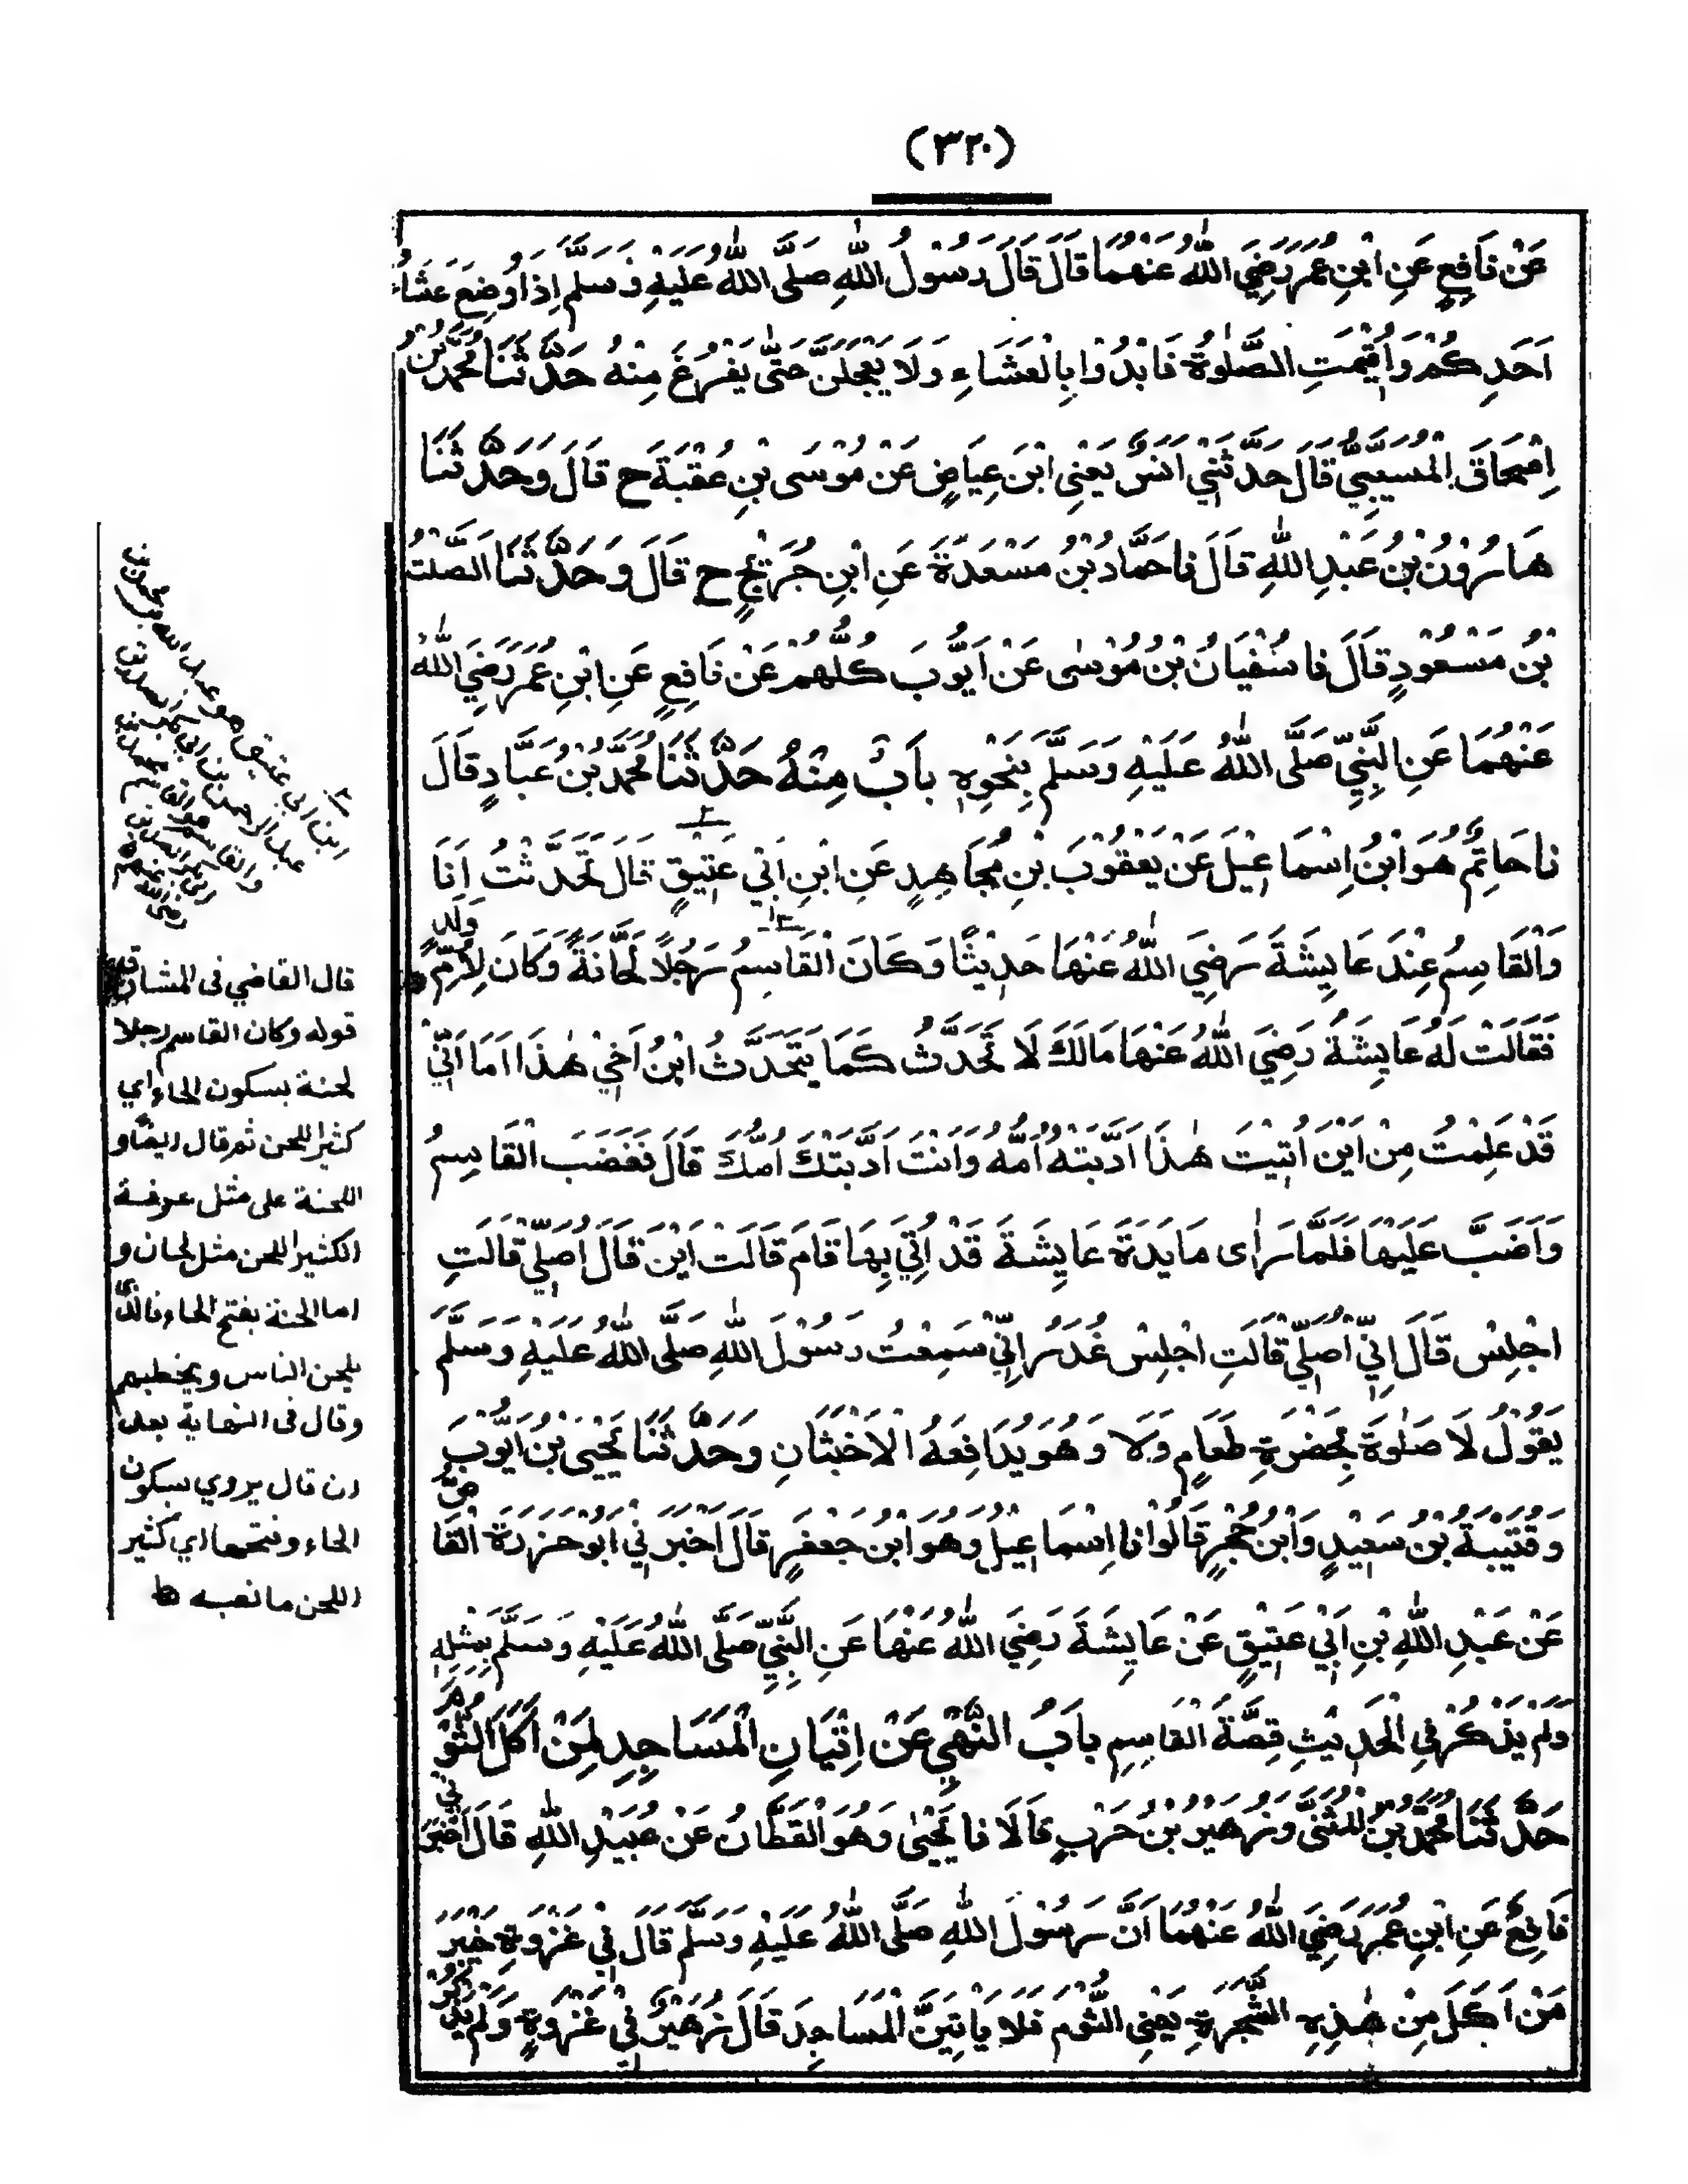 (٣٢٠)
عَنْ نَافِعٍ عَنِ ابْنِ عُمَرَ رَضِيَ اللهُ عَنْهُمَا قَالَ قَالَ رَسُوْلُ اللهِ صَلَّى اللهُ عَلَيْهِ وَسَلَّمَ اِذَا وُضِعَ عَشَاءُ
اَحَدِكُمْ وَاُقِيْمَتِ الصَّلٰوةُ فَابْدُوْا بِالْعَشَاءِ وَلَا يَعْجَلَنَّ حَتّٰى يَفْرُغَ مِنْهُ حَدَّثَنَا مُحَمَّدُ بْنُ
اِسْحَاقَ الْمُسَيَّبِيُّ قَالَ حَدَّثَنِيْ اَنَسٌ يَعْنِى ابْنَ عِيَاضٍ عَنْ مُوْسَى بْنِ عُقْبَةَ ح قَالَ وَحَدَّثَنَا
هَارُوْنُ بْنُ عَبْدِ اللهِ قَالَ نا حَمَّادُ بْنُ مَسْعَدَةَ عَنِ ابْنِ جُرَيْجٍ ح قَالَ وَحَدَّثَنَا الصَّلْتُ
بْنُ مَسْعُوْدٍ قَالَ نا سُفْيَانُ بْنُ مُوْسٰى عَنْ اَيُّوْبَ كُلُّهُمْ عَنْ نَافِعٍ عَنِ ابْنِ عُمَرَ رَضِيَ اللهُ
عَنْهُمَا عَنِ النَّبِيِّ صَلَّى اللهُ عَلَيْهِ وَسَلَّمَ بِنَحْوِهٖ بَابٌ مِنْهُ حَدَّثَنَا مُحَمَّدُ بْنُ عَبَّادٍ قَالَ
نا حَاتِمٌ هُوَ ابْنُ اِسْمَاعِيْلَ عَنْ يَعْقُوْبَ بْنِ مُجَاهِدٍ عَنِ ابْنِ اَبِيْ عَتِيْقٍ قَالَ تَحَدَّثْتُ اَنَا
وَالْقَاسِمُ عِنْدَ عَايِشَةَ رَضِيَ اللهُ عَنْهَا حَدِيْثًا وَكَانَ الْقَاسِمُ رَجُلًا لَحَّانَةً وَكَانَ لِاُمِّ وَلَدٍ
فَقَالَتْ لَهُ عَايِشَةُ رَضِيَ اللهُ عَنْهَا مَالَكَ لَا تَحَدَّثُ كَمَا يَتَحَدَّثُ ابْنُ اَخِيْ هٰذَا اَمَا اَنِّيْ
قَدْ عَلِمْتُ مِنْ اَيْنَ اُتِيْتَ هٰذَا اَدَّبَتْهُ اُمُّهُ وَاَنْتَ اَدَّبَتْكَ اُمُّكَ قَالَ فَغَضِبَ الْقَاسِمُ
وَاَضَبَّ عَلَيْهَا فَلَمَّا رَاٰى مَايِدَةَ عَايِشَةَ قَدْ اُتِيَ بِهَا قَامَ قَالَتْ اَيْنَ قَالَ اُصَلِّيْ قَالَتِ
اجْلِسْ قَالَ اِنِّيْ اُصَلِّيْ قَالَتِ اجْلِسْ غُدَرُ اِنِّيْ سَمِعْتُ رَسُوْلَ اللهِ صَلَّى اللهُ عَلَيْهِ وَسَلَّمَ
يَقُوْلُ لَا صَلٰوةَ بِحَضْرَةِ طَعَامٍ وَلَا وَهُوَ يُدَافِعُهُ الْاَخْبَثَانِ وَحَدَّثَنَا يَحْيَى بْنُ اَيُّوْبَ
وَقُتَيْبَةُ بْنُ سَعِيْدٍ وَابْنُ حُجْرٍ قَالُوْا نا اِسْمَاعِيْلُ وَهُوَ ابْنُ جَعْفَرٍ قَالَ اَخْبَرَنِيْ اَبُوْ حَزْرَةَ الْقَاصُّ
عَنْ عَبْدِ اللهِ بْنِ اَبِيْ عَتِيْقٍ عَنْ عَايِشَةَ رَضِيَ اللهُ عَنْهَا عَنِ النَّبِيِّ صَلَّى اللهُ عَلَيْهِ وَسَلَّمَ بِمِثْلِهٖ
وَلَمْ يَذْكُرْ فِي الْحَدِيْثِ قِصَّةَ الْقَاسِمِ بَابُ النَّهْيِ عَنْ اِتْيَانِ الْمَسَاجِدِ لِمَنْ اَكَلَ الثُّوْمَ
حَدَّثَنَا مُحَمَّدُ بْنُ الْمُثَنّٰى وَزُهَيْرُ بْنُ حَرْبٍ قَالَا نا يَحْيٰى وَهُوَ الْقَطَّانُ عَنْ عُبَيْدِ اللهِ قَالَ اَخْبَرَنِيْ
نَافِعٌ عَنِ ابْنِ عُمَرَ رَضِيَ اللهُ عَنْهُمَا اَنَّ رَسُوْلَ اللهِ صَلَّى اللهُ عَلَيْهِ وَسَلَّمَ قَالَ فِيْ غَزْوَةِ خَيْبَرَ
مَنْ اَكَلَ مِنْ هٰذِهِ الشَّجَرَةِ يَعْنِى الثُّوْمَ فَلَا يَاْتِيَنَّ الْمَسَاجِدَ قَالَ زُهَيْرٌ فِيْ غَزْوَةٍ وَلَمْ يَذْكُرْ
ابن ابى عتيق هو عبد الله بن محمد بن
عبد الرحمن بن ابي بكر الصديق
والقاسم هو القاسم بن محمد بن
ابي بكر الصديق
رضى الله عنهم
قال القاضي فى المشارق
قوله وكان القاسم رجلا
لحنة بسكون الحاء اي
كثير اللحن ثم قال ايضا و
اللحنة على مثل عرفة
الكثير اللحن مثل لحان و
اما لحنة بفتح الحاء فالذى
يلحن الناس ويخطئهم
وقال فى النهاية بعد
ان قال يروي بسكون
الحاء وفتحها اي كثير
اللحن ما نصه